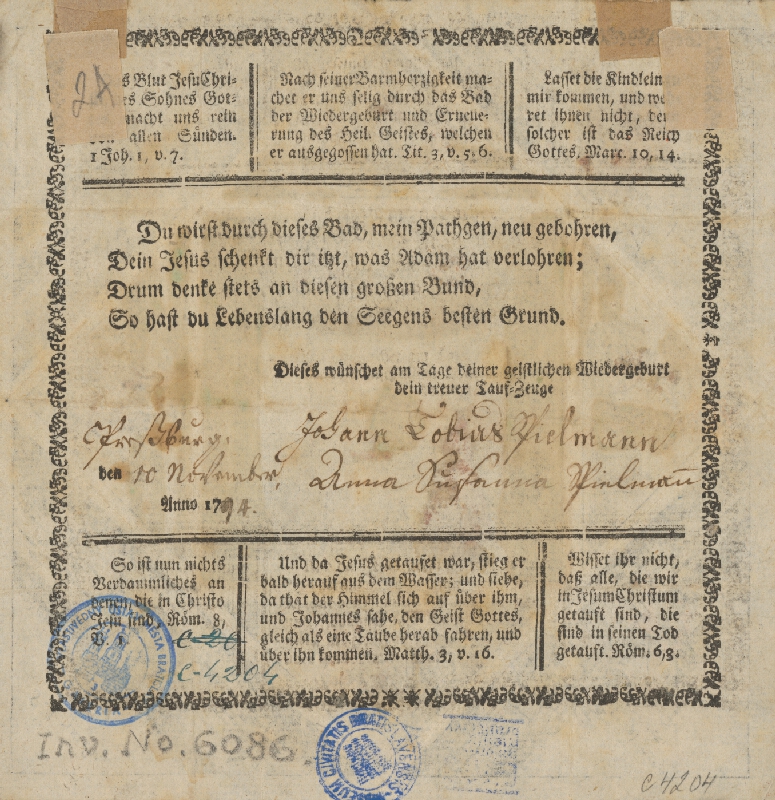 2A
s Blut Jesu Chri-
s Sohnes Got-
macht uns rein
von allen Sünden.
1 Joh. 1, v. 7.
Nach seiner Barmherzigkeit ma-
chet er uns selig durch das Bad
der Wiedergeburt und Erneue-
rung des Heil. Geistes, welchen
er ausgegossen hat. Tit. 3, v. 5. 6.
Lasset die Kindlein
mir kommen, und we
ret ihnen nicht, den
solcher ist das Reich
Gottes. Marc. 10, 14.
Du wirst durch dieses Bad, mein Pathgen, neu gebohren,
Dein Jesus schenkt dir itzt, was Adam hat verlohren;
Drum denke stets an diesen großen Bund,
So hast du Lebenslang den Seegens besten Grund.
Dieses wünschet am Tage deiner geistlichen Wiedergeburt
dein treuer Tauf-Zeuge
Preßburg. Johann Tobias Pielmann
den 10 November, Anna Susanna Pielmann
Anno 1794.
So ist nun nichts
Verdammliches an
denen, die in Christo
Jesu sind. Röm. 8,
V. 1.
Und da Jesus getaufet war, stieg er
bald herauf aus dem Wasser; und siehe,
da that der Himmel sich auf über ihm,
und Johannes sahe, den Geist Gottes,
gleich als eine Taube herab fahren, und
über ihn kommen. Matth. 3, v. 16.
Wisset ihr nicht,
daß alle, die wir
in Jesum Christum
getauft sind, die
sind in seinen Tod
getauft. Röm. 6, 3.
C-20
C-4204
Inv. No. 6086
CIVITATIS BRATISLAVENSIS
C 4204